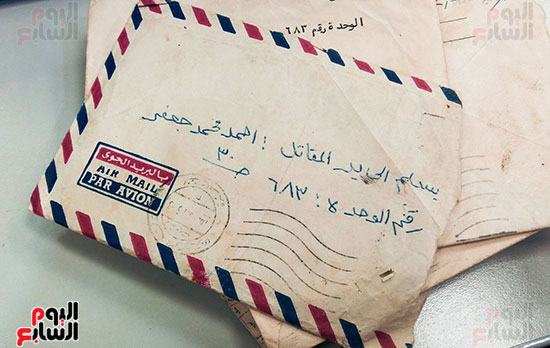 اليوم السابع
الوحدة رقم ٦٨٣
يسلم الى يد المقاتل : احمد محمد جعفر
رقم الوحدة : ٦٨٣ ص ٣٠
بالبريد الجوى
AIR MAIL
PAR AVION
اليوم السابع
اليوم السابع
اليوم السابع